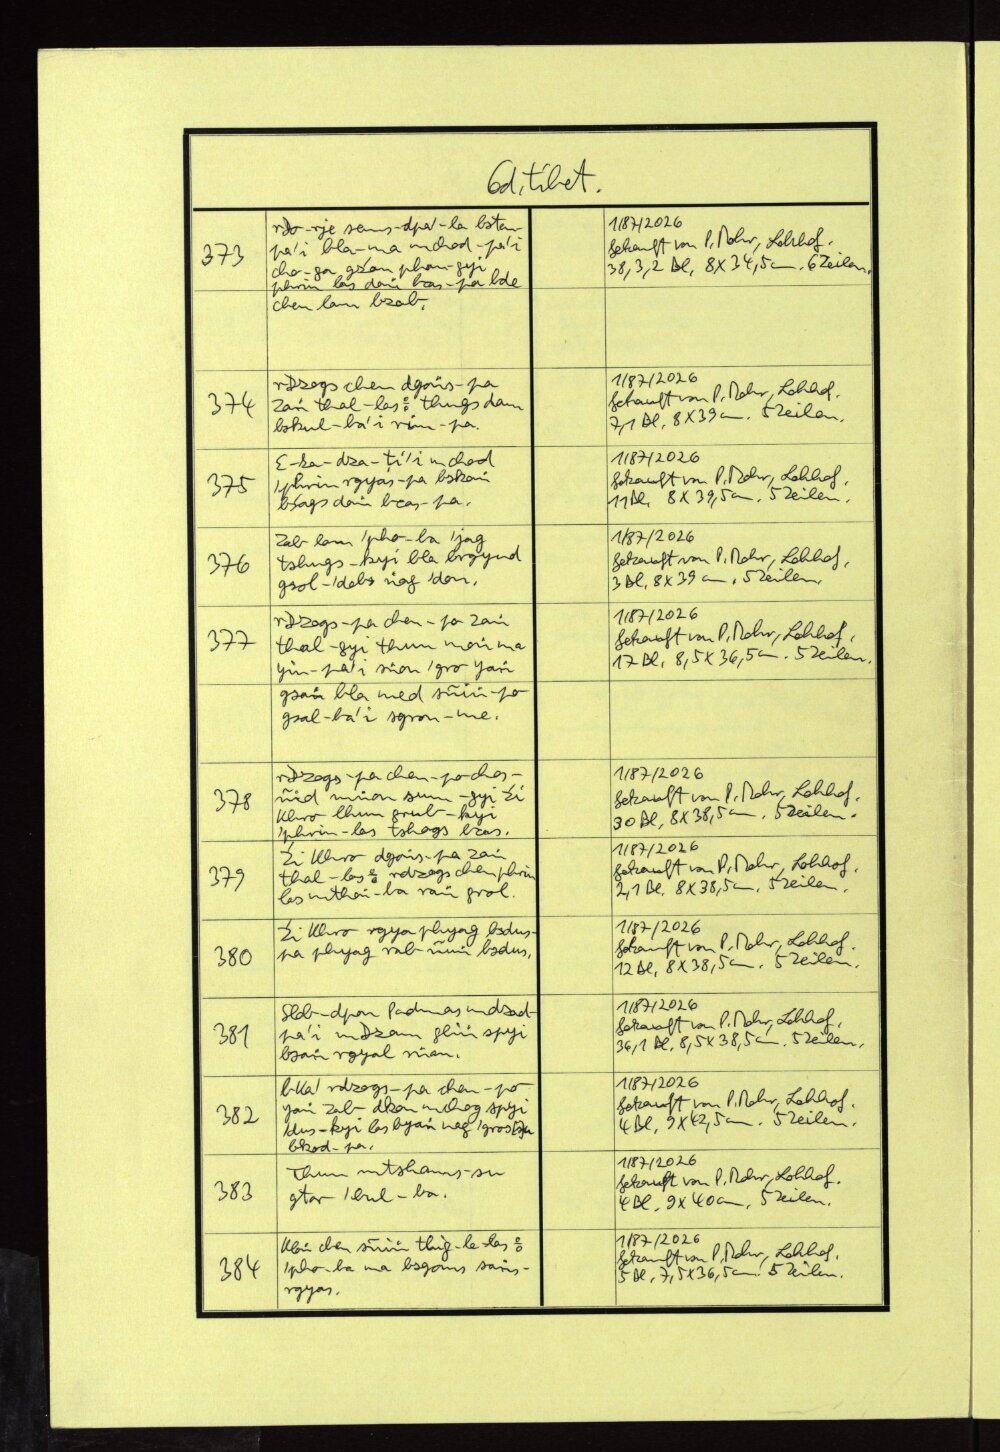 Cod. tibet.
373
rDo-rje sems-dpa'-la bsten-
pa'i bla-ma mchod-pa'i
cho-ga gźan phan-gyi
phrin las dań bcas-pa bde
chen lam bzab.
1/87/2026
Gekauft von P. Mohr, Lohhof.
38, 3, 2 Bl, 8X34,5cm. 6 Zeilen.
374
rDzogs chen dgoṅs-pa
zaṅ thal-las༔ thugs dam
bskul-ba'i rim-pa.
1/87/2026
Gekauft von P. Mohr, Lohhof.
7,1 Bl, 8X39cm. 5 Zeilen.
375
E-ka-dza-ṭi'i mchod
'phrin rgyas-pa bskaṅ
bśags daṅ bcas-pa.
1/87/2026
Gekauft von P. Mohr, Lohhof.
11 Bl, 8X39,5cm. 5 Zeilen.
376
Zab lam 'pho-ba 'jag
tshugs-kyi bla brgyud
gsol-'debs ṅag 'don.
1/87/2026
Gekauft von P. Mohr, Lohhof.
3 Bl, 8X39cm. 5 Zeilen.
377
rDzogs-pa chen-po zaṅ
thal-gyi thun moṅ ma
yin-pa'i sṅon 'gro yaṅ
gsaṅ bla med sñiṅ-po
gsal-ba'i sgron-me.
1/87/2026
Gekauft von P. Mohr, Lohhof.
17 Bl, 8,5X36,5cm. 5 Zeilen.
378
rDzogs-pa chen-po chos-
ñid mṅon sum-gyi źi
khro lhun grub-kyi
'phrin-las tshogs bcas.
1/87/2026
Gekauft von P. Mohr, Lohhof.
30 Bl, 8X38,5cm. 5 Zeilen.
379
Źi khro dgoṅs-pa zaṅ
thal-las༔ rdzogs chen phrin
las mtha'-ba raṅ grol.
1/87/2026
Gekauft von P. Mohr, Lohhof.
2,1 Bl, 8X38,5cm. 5 Zeilen.
380
Źi khro rgya phyag bsdus-
pa phyag rab-ñuṅ bsdus.
1/87/2026
Gekauft von P. Mohr, Lohhof.
12 Bl, 8X38,5cm. 5 Zeilen.
381
Slob-dpon Padmas mdzad-
pa'i mDzam gliṅ spyi
bsaṅ rgyal mṅan.
1/87/2026
Gekauft von P. Mohr, Lohhof.
36,1 Bl, 8,5X38,5cm. 5 Zeilen.
382
bKa' rdzogs-pa chen-po
yaṅ zab dkon mchog spyi
'dus-kyi las byaṅ ṅag 'gros
bkod-pa.
1/87/2026
Gekauft von P. Mohr, Lohhof.
4 Bl, 9X42,5cm. 5 Zeilen.
383
Thun mtshams-su
gtor 'bul-ba.
1/87/2026
Gekauft von P. Mohr, Lohhof.
4 Bl, 9X40cm, 5 Zeilen.
384
Kloṅ chen sñiṅ thig-le-las༔
'pho-ba ma bsgoms saṅs-
rgyas.
1/87/2026
Gekauft von P. Mohr, Lohhof.
5 Bl, 7,5X36,5cm. 5 Zeilen.